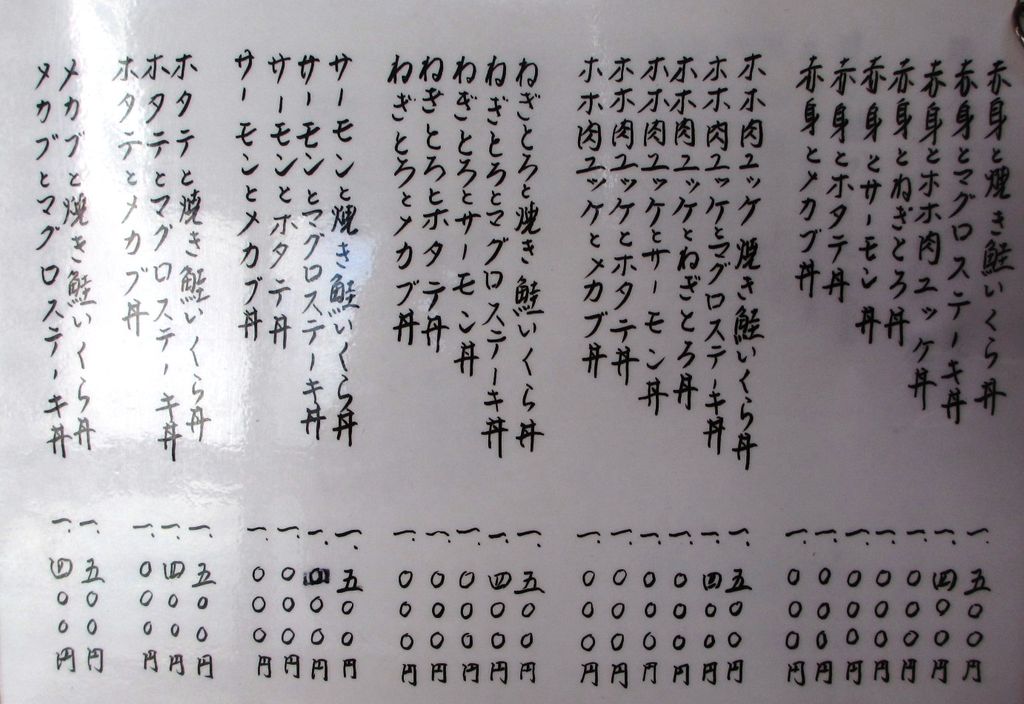 赤身と焼き鮭いくら丼 一、五〇〇円
赤身とマグロステーキ丼 一、四〇〇円
赤身とホ肉ユッケ丼 一、〇〇〇円
赤身とねぎとろ丼 一、〇〇〇円
赤身とサーモン丼 一、〇〇〇円
赤身とホタテ丼 一、〇〇〇円
赤身とメカブ丼 一、〇〇〇円
ホホ肉ユッケ焼き鮭いくら丼 一、五〇〇円
ホホ肉ユッケとマグロステーキ丼 一、四〇〇円
ホホ肉ユッケとねぎとろ丼 一、〇〇〇円
ホホ肉ユッケとサーモン丼 一、〇〇〇円
ホホ肉ユッケとホタテ丼 一、〇〇〇円
ホホ肉ユッケとメカブ丼 一、〇〇〇円
ねぎとろと焼き鮭いくら丼 一、五〇〇円
ねぎとろとマグロステーキ丼 一、四〇〇円
ねぎとろとサーモン丼 一、〇〇〇円
ねぎとろとホタテ丼 一、〇〇〇円
ねぎとろとメカブ丼 一、〇〇〇円
サーモンと焼き鮭いくら丼 一、五〇〇円
サーモンとマグロステーキ丼 一、四〇〇円
サーモンとホタテ丼 一、〇〇〇円
サーモンとメカブ丼 一、〇〇〇円
ホタテと焼き鮭いくら丼 一、五〇〇円
ホタテとマグロステーキ丼 一、四〇〇円
ホタテとメカブ丼 一、〇〇〇円
メカブと焼き鮭いくら丼 一、五〇〇円
メカブとマグロステーキ丼 一、四〇〇円